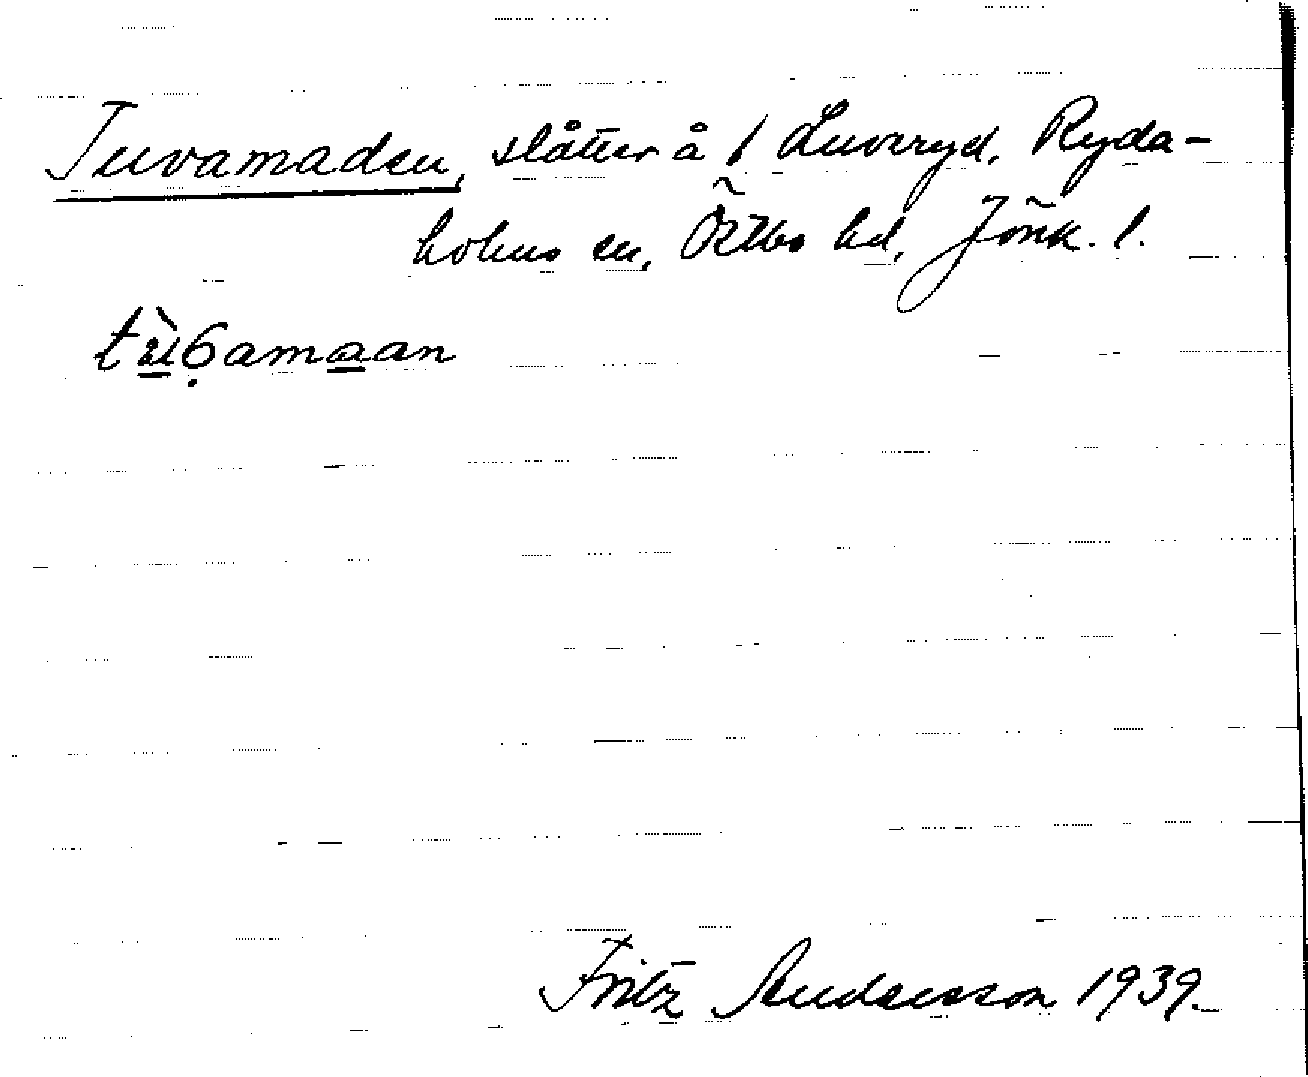 Tuvamaden, slåtter å 1 Luveryd, Ryda-
holms sn, Östbo hd, Jönk. l.
Fritz Andersson 1939